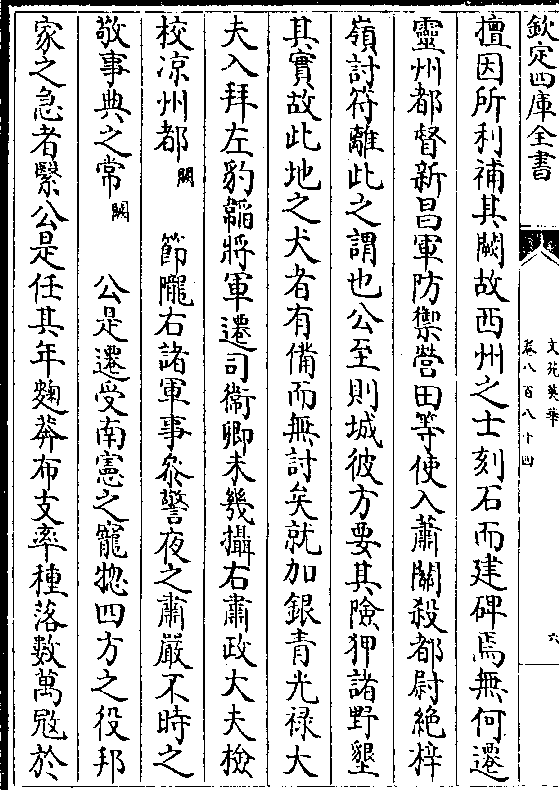 欽定四庫全書
文苑英華
卷八百八十四
六
擅因所利補其闕故西州之士刻石而建碑焉無何遷
靈州都督新昌軍防禦營田等使入蕭關殺都尉絶梓
嶺討符離此之謂也公至則城彼方要其險狎諸野墾
其實故此地之犬者有備而無討矣就加銀青光禄大
夫入拜左豹韜將軍遷司衛卿未幾攝右肅政大夫檢
校凉州都闕節隴右諸軍事叅警夜之肅嚴不時之
敬事典之常闕公是遷受南憲之寵揔四方之役邦
家之急者繄公是任其年麴莽布支率種落數萬㓂於